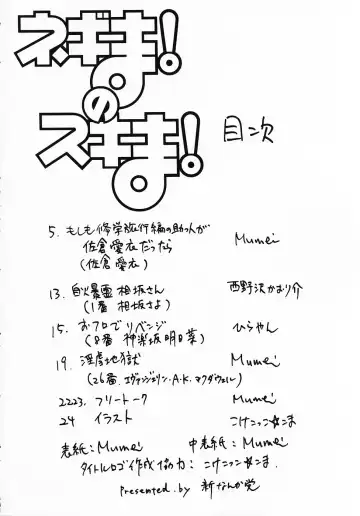 ネギま!
の
スキま!
目次
5. もしも修学旅行編の助っ人が
佐倉愛衣だったら
(佐倉愛衣)
Mumei
13. 自爆霊 相坂さん
(1番 相坂さよ)
西野沢かまり介
15. おフロでリベンジ
(8番 神楽坂明日菜)
ひらやん
19. 淫虐地獄
(26番. エヴァンジェリン.A.K.マクダウェル)
Mumei
22.23. フリートーク
Mumei
24 イラスト
こけこっこ☆こま
表紙:Mumei 中表紙:Mumei
タイトルロゴ作成協力: こけコッコン☆こま.
Presented.by 新なんか党